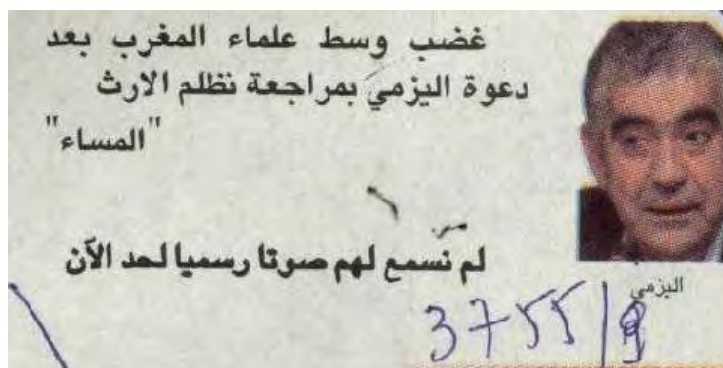 غضب وسط علماء المغرب بعد
دعوة اليزمي بمراجعة نظلم الارث
"المساء"
لم نسمع لهم صوتا رسميا لحد الآن
اليزمي
3755/9